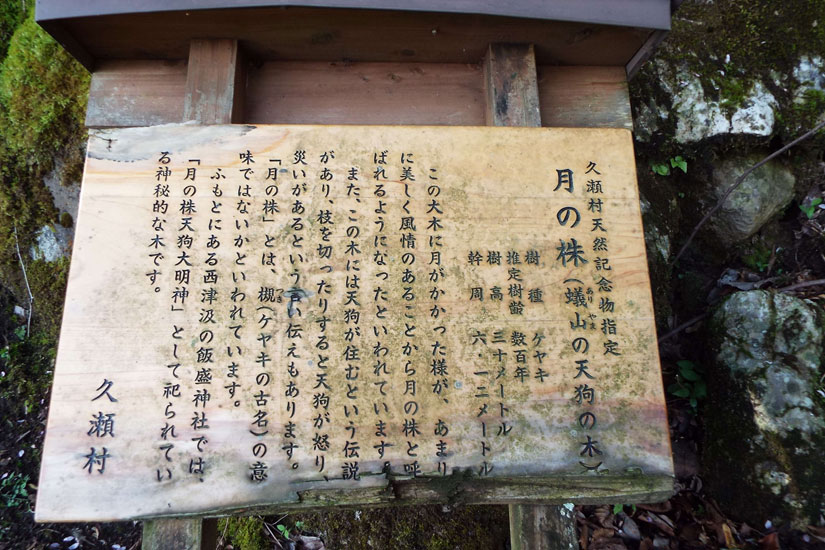 久瀬村天然記念物指定
月の株(蟻山の天狗の木)
あり やま
樹種 ケヤキ
推定樹齢 数百年
樹高 三十メートル
幹周 六・一二メートル
この大木に月がかかった様が、あまり
に美しく風情のあることから月の株と呼
ばれるようになったといわれています。
また、この木には天狗が住むという伝説
があり、枝を切ったりすると天狗が怒り、
災いがあるという言い伝えもあります。
「月の株」とは、槻(ケヤキの古名)の意
味ではないかといわれています。
ふもとにある西津汲の飯盛神社では、
「月の株天狗大明神」として祀られてい
る神秘的な木です。
久瀬村